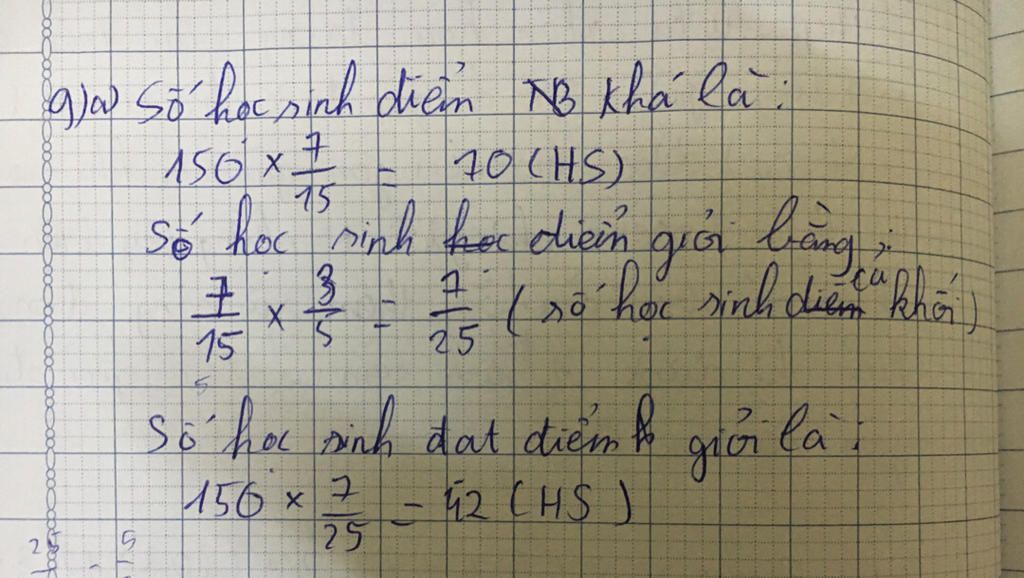 9)a) Số học sinh điểm TB khá là:
150 × 7/15 = 70 (HS)
Số học sinh học điểm giỏi bằng:
7/15 × 3/5 = 7/25 (số học sinh điểm cả khối)
5
Số học sinh đạt điểm giỏi là:
150 × 7/25 = 42 (HS)
25 5